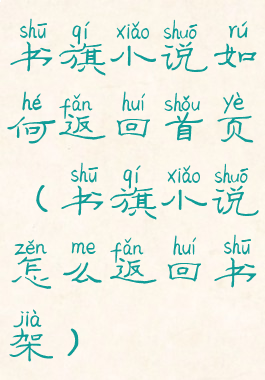 shū qí xiǎo shuō rú
书旗小说如
hé fǎn huí shǒu yè
何返回首页
shū qí xiǎo shuō
（书旗小说
zěn me fǎn huí shū
怎么返回书
jià
架）